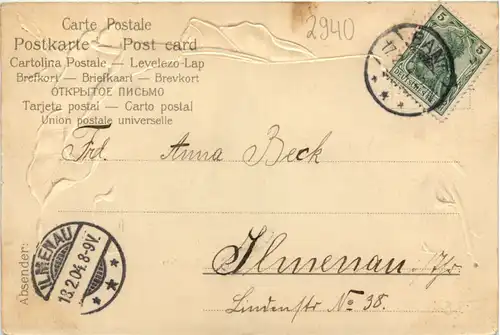 Carte Postale
Postkarte — Post card
Cartolina Postale — Levelezo-Lap
Brefkort — Briefkaart — Brevkort
ОТКРЫТОЕ ПИСЬМО
Tarjeta postal — Carto postal
Union postale universelle
2940
5 5
Frl. Anna Beck
Ilmenau, Th.
Lindenstr No 38.
Absender:
ILMENAU
13.2.04. 8-9V.